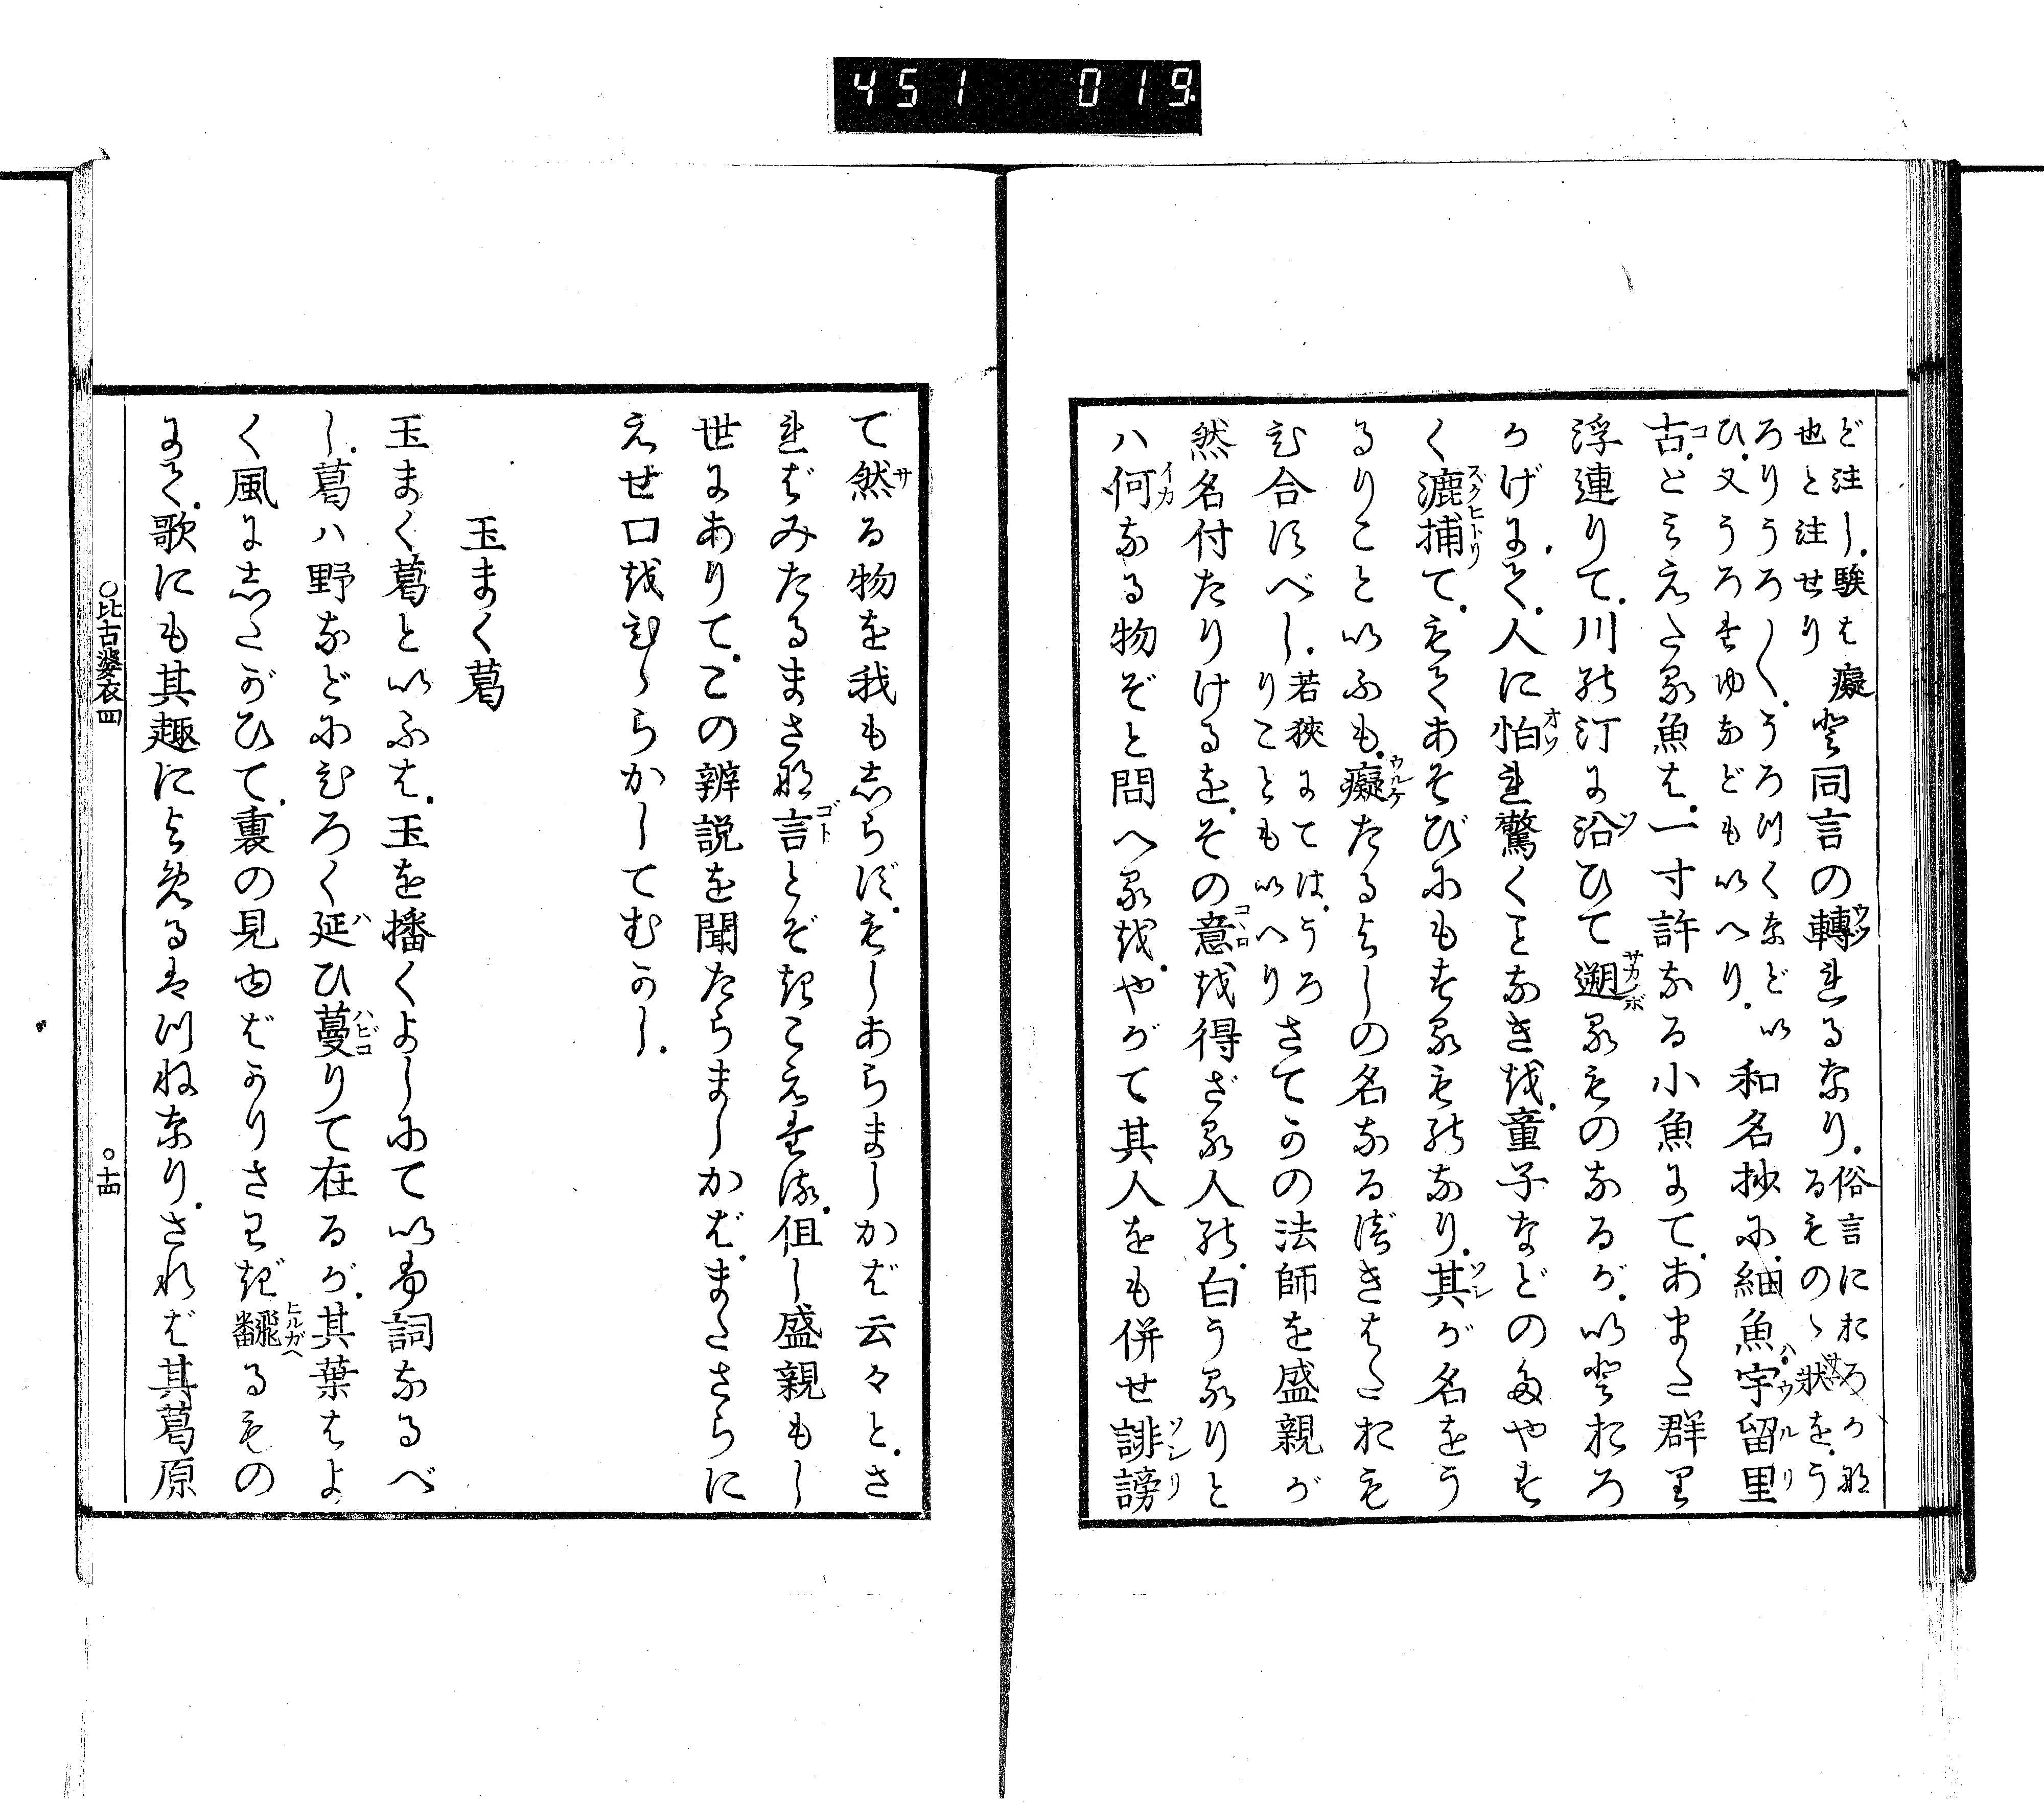 451 019.
ど注し.騃は癡
也と注せり
と同言の轉れるなり.
俗言におろかな
るものゝ狀を.う
ろりうろ〳〵.うろつくなどい
ひ.又うろたゆなども以へり.
和名抄に.細魚宇留里
古.とみえたる魚は.一寸許なる小魚にて.あまた群里
浮連りて.川の汀に沿ひて遡るものなるが.いとおろ
かげにて.人に怕れ驚くことなきを.童子などのたやす
く漉捕て.もてあそびにもするものなり.其が名をう
るりこといふも.癡たるよしの名なるべきはたおも
ひ合すべし.
若狹にては.うろ
りこともいへり
さてかの法師を盛親が
然名付たりけるを.その意を得ざる人の.白うるりと
ハ何なる物ぞと問へるを.やがて其人をも併せ誹謗
て然る物を我もしらず.もしあらましかば云々と.さ
ればみたるまさな言とぞきこえたる.但し盛親もし
世にありて.この辨説を聞たらましかば.またさらに
えせ口をひゝらかしてむかし.
玉まく葛
玉まく葛といふは.玉を播くよしにていふ詞なるべ
し.葛ハ野などにひろく延ひ蔓りて在るが.其葉はよ
く風にしたがひて.裏の見ゆばかりさわぎ飜るもの
にて.歌にも其趣によめるはつねなり.されば其葛原
○比古婆衣四
○十四